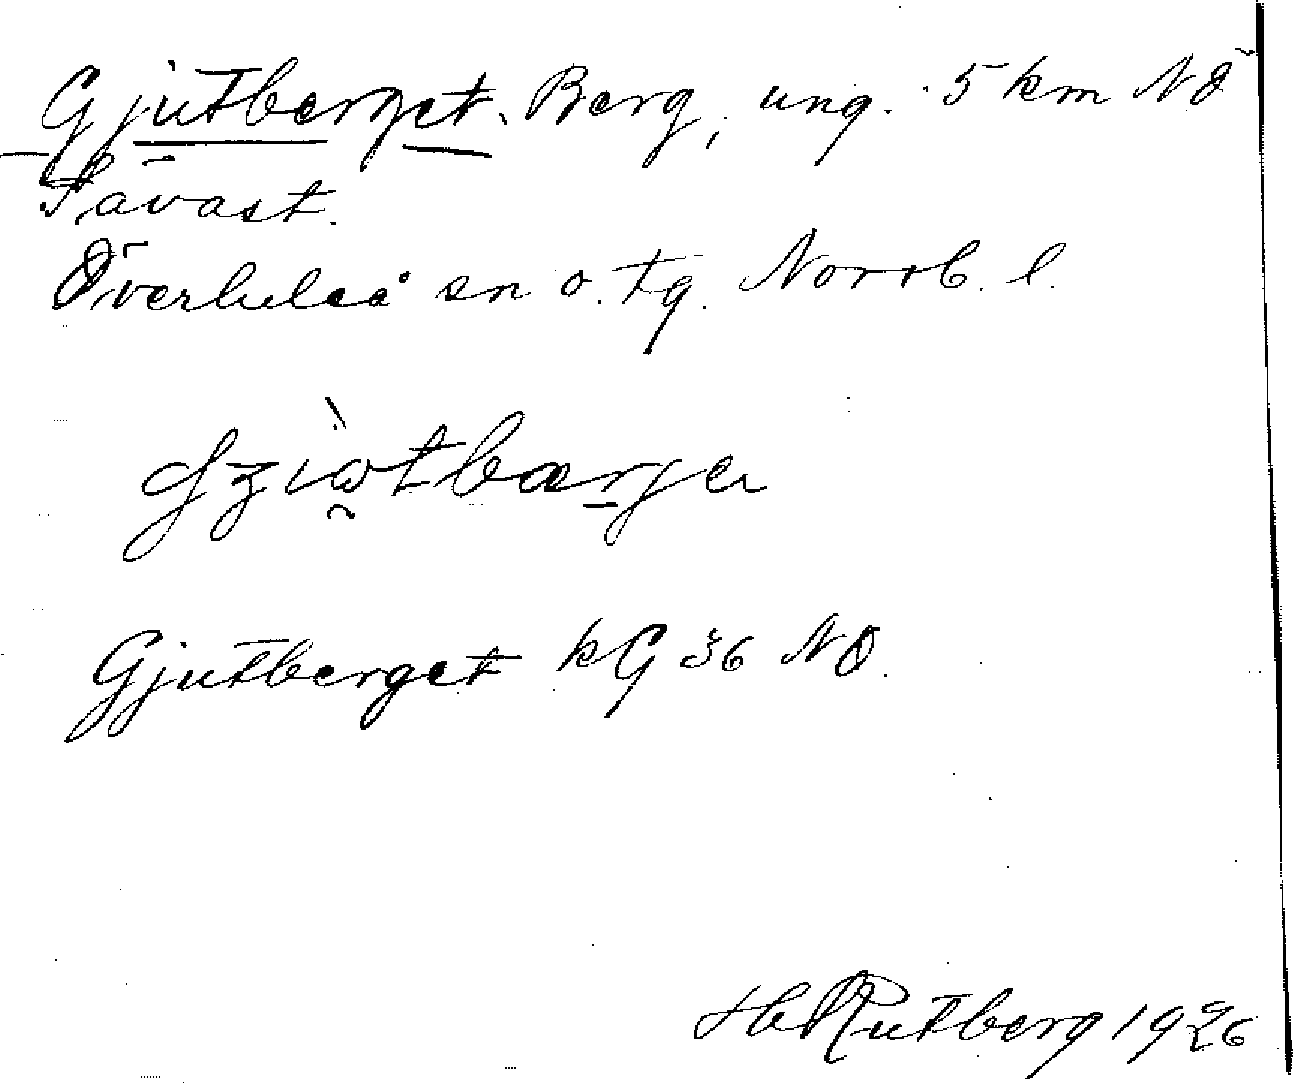 Gjutberget. Berg, ung. 5 km NÖ
Sävast.
Överluleå sn o. tg. Norrb. l.
Gjutberget kG 36 NO.
H Rutberg 1926